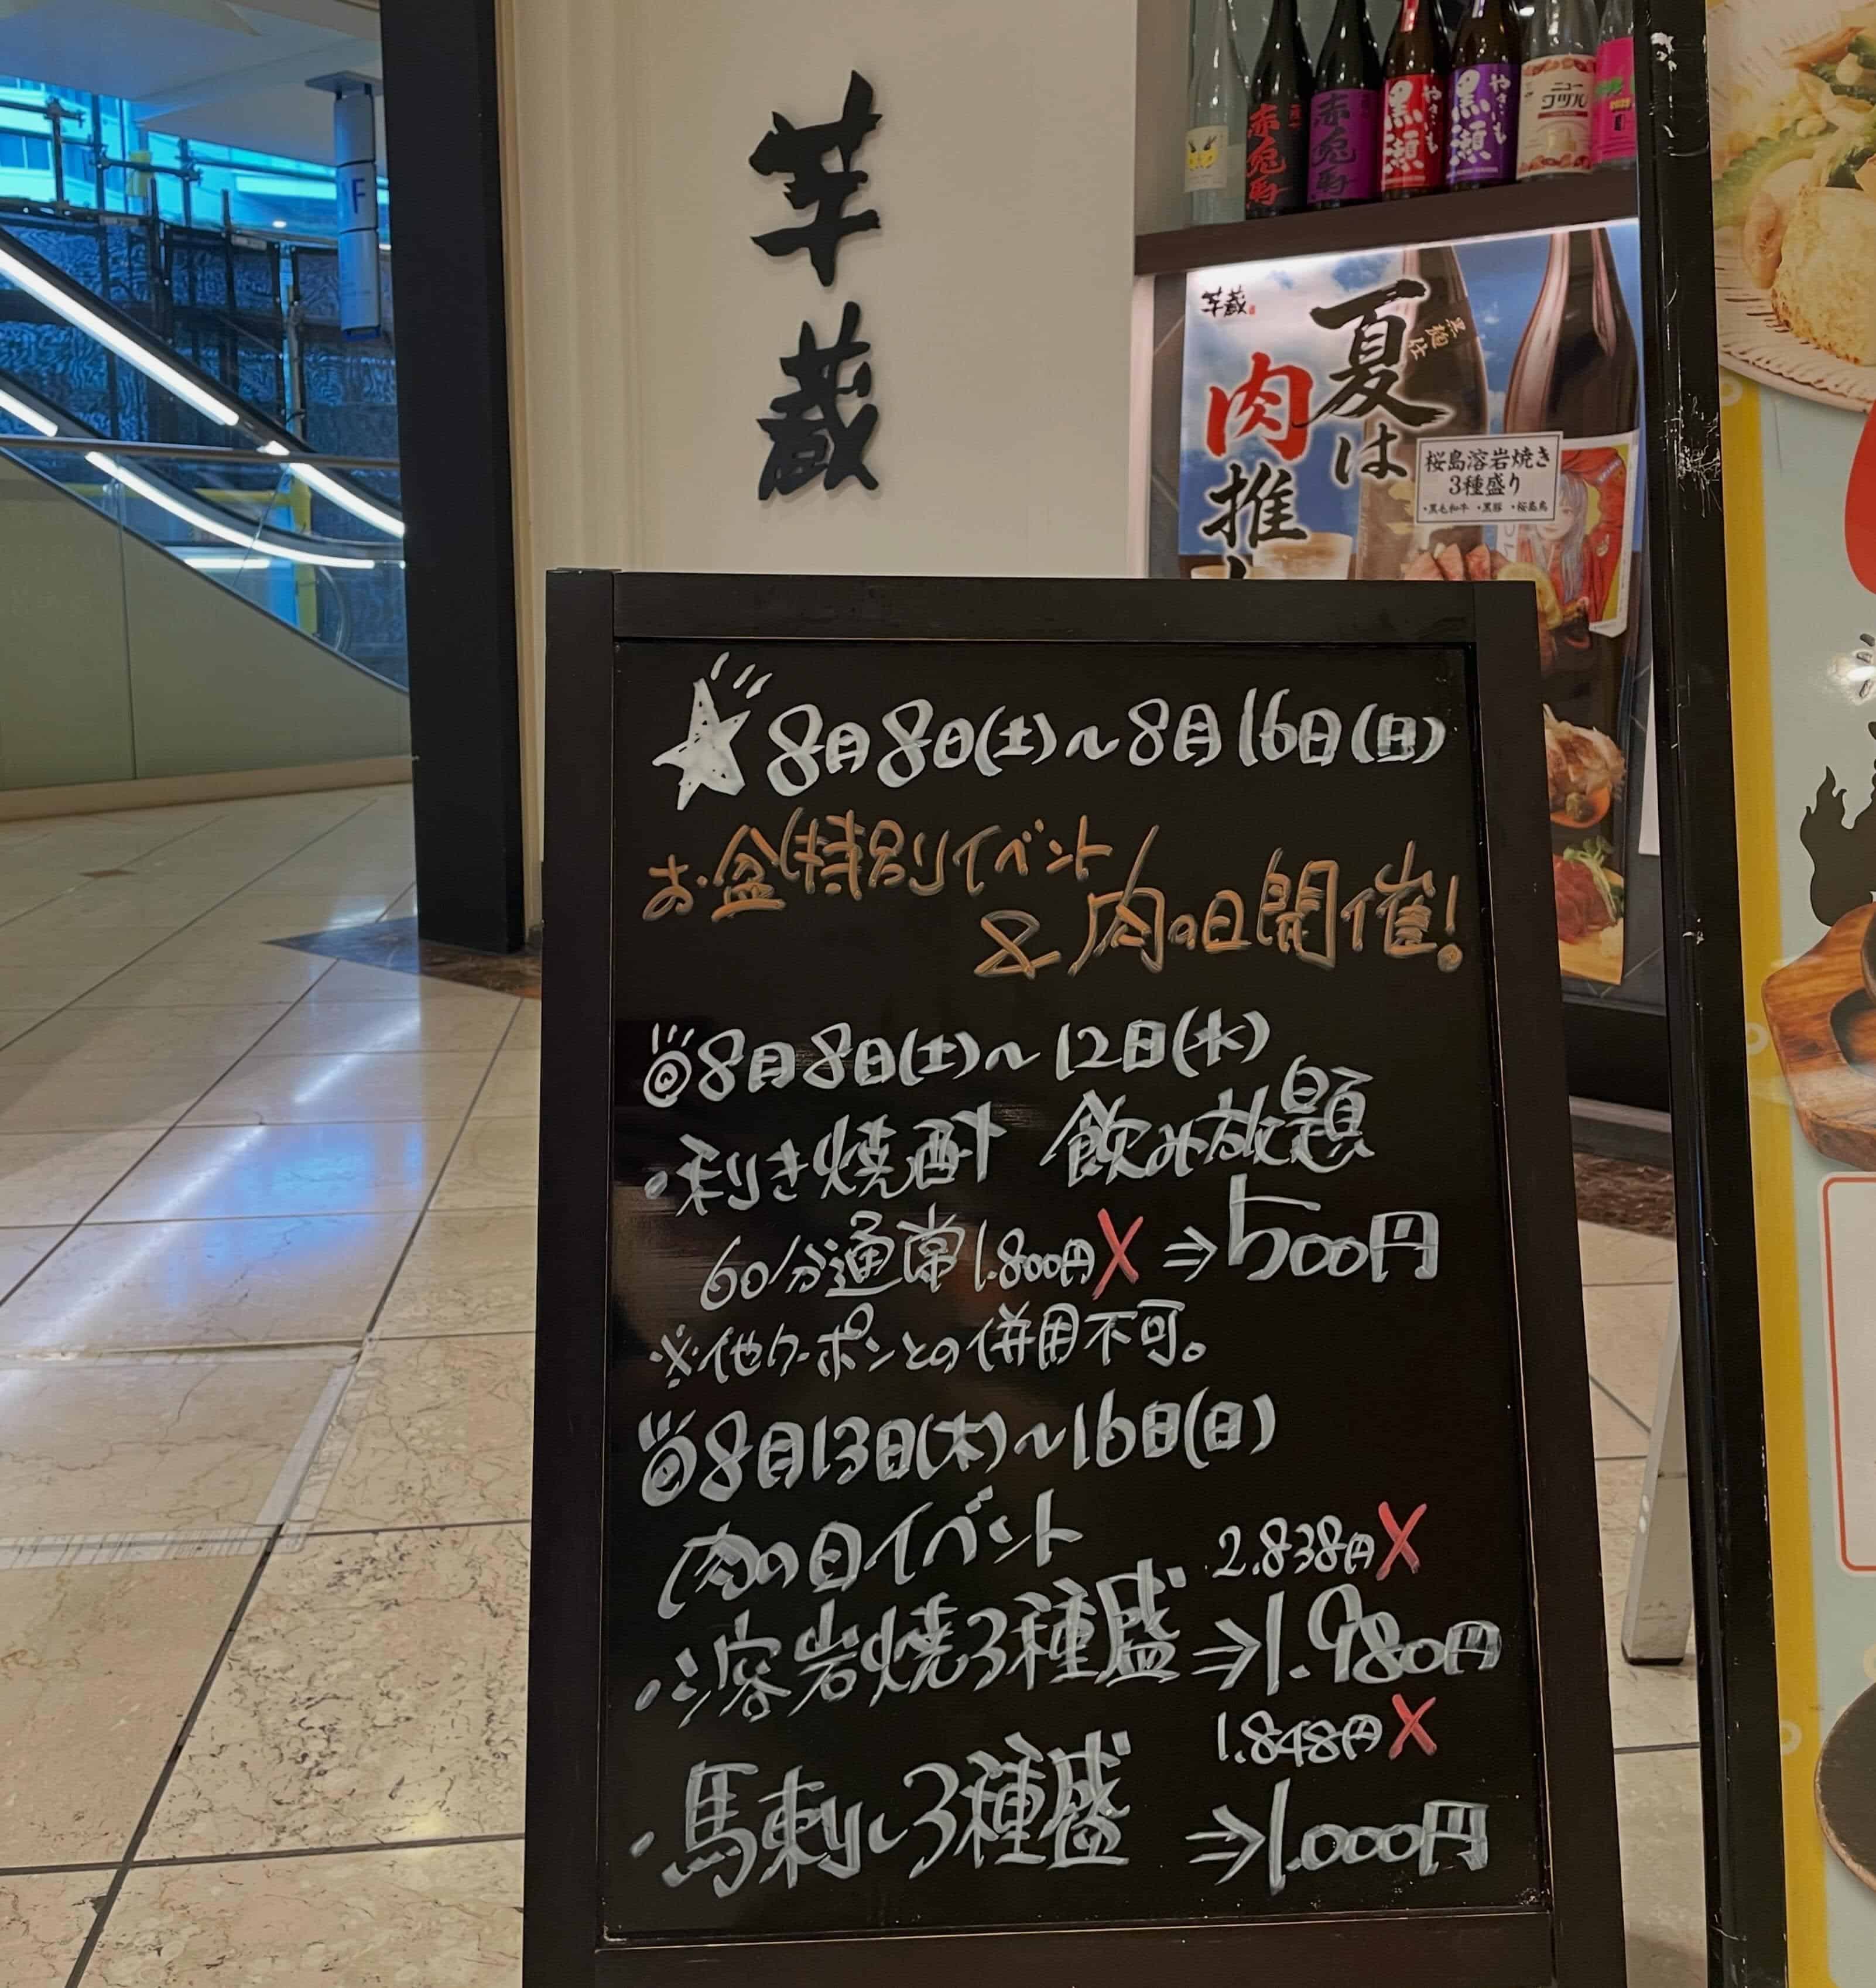 芋蔵
赤兎馬
赤兎馬
やきいも
黒瀬
やきいも
黒瀬
ニュー
芋蔵
夏は
肉推
桜島溶岩焼き
3種盛り
・黒毛和牛 ・黒豚 ・桜島鳥
F
8月8日(土)~8月16日(日)
お盆特別イベント
& 肉の日開催!
8月8日(土)~12日(水)
・利き焼酎 飲み放題
60分通常1.800円X⇒500円
※他クーポンとの併用不可。
8月13日(木)~16日(日)
肉の日イベント
2.838円X
・溶岩焼3種盛⇒1.980円
1.848円X
・馬刺し3種盛⇒1.000円